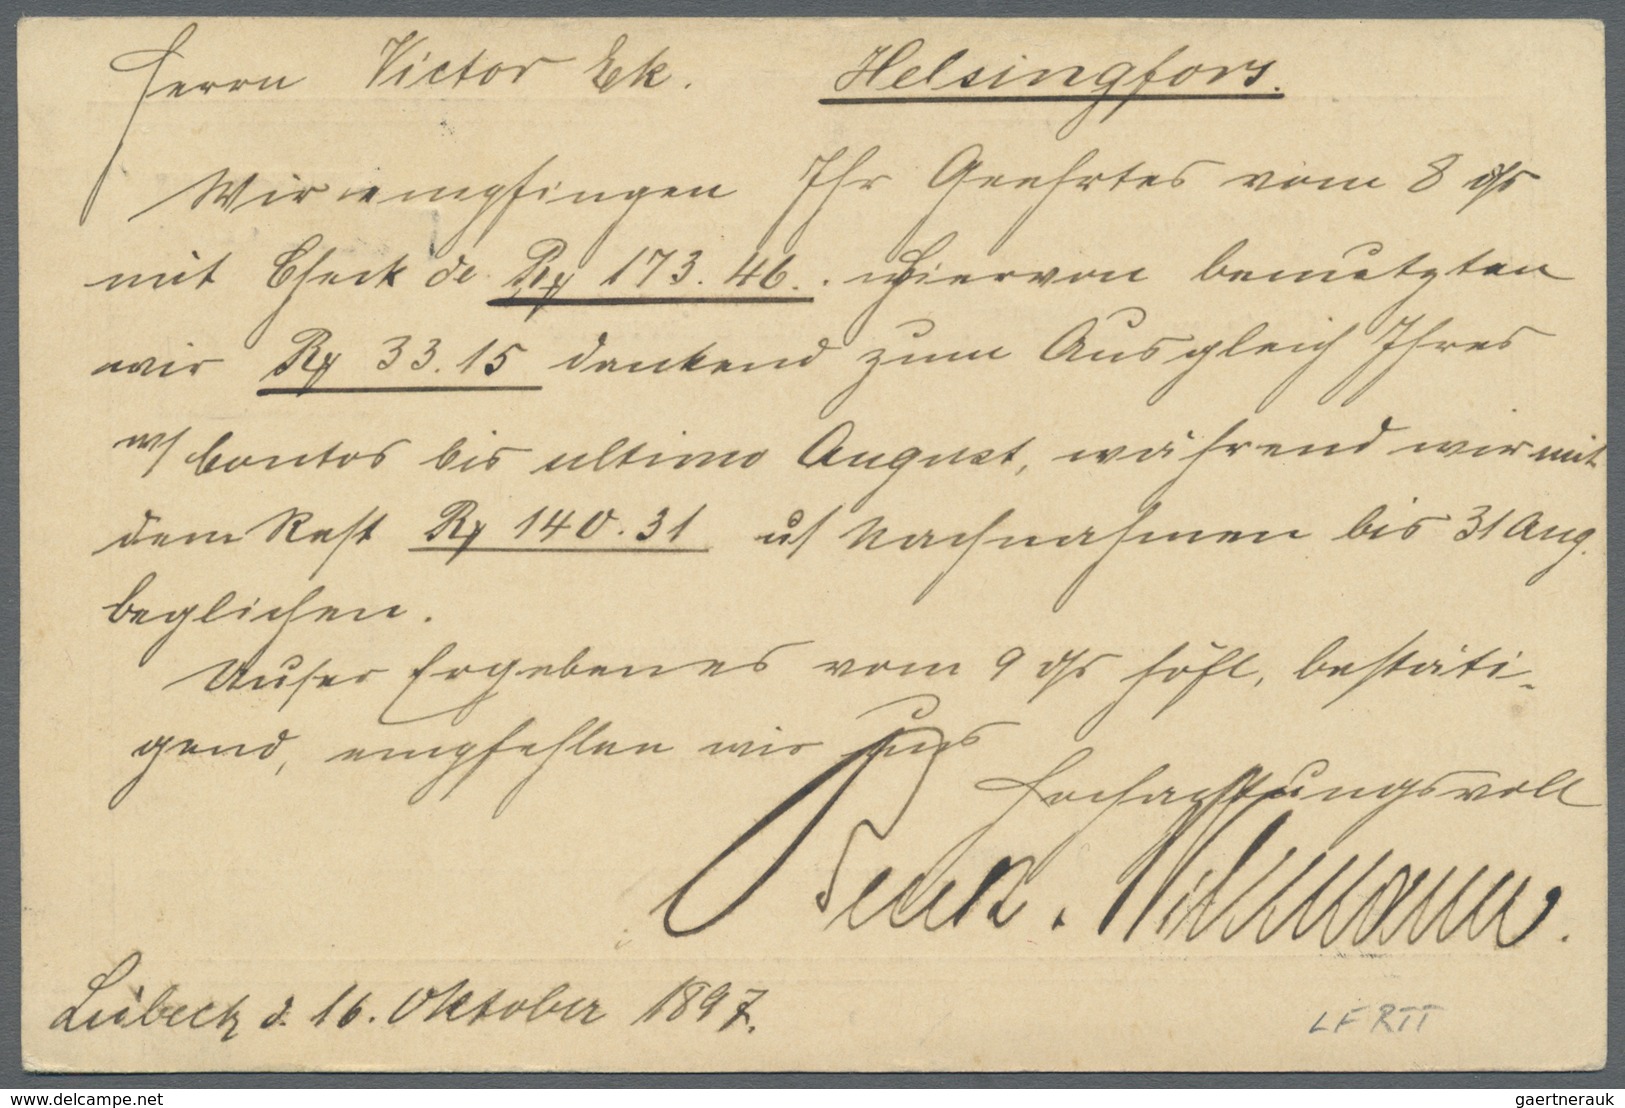 Herrn Victor Ek. Helsingfors.
Wir empfingen Ihr Geehrtes vom 8 ds
mit Check de Rℳ 173.46. Hiervon benutzten
wir Rℳ 33.15 dankend zum Ausgleich Ihres
w/ Contos bis ultimo August, während wir mit
dem Rest Rℳ 140.31 u/ Nachnahmen bis 31 Aug.
beglichen.
Unser Ergebenes vom 9 ds höfl. bestäti-
gend, empfehlen wir uns
Hochachtungsvoll
Lübeck d. 16. Oktober 1897.
LFRTT
www.delcampe.net
gaertnerauk